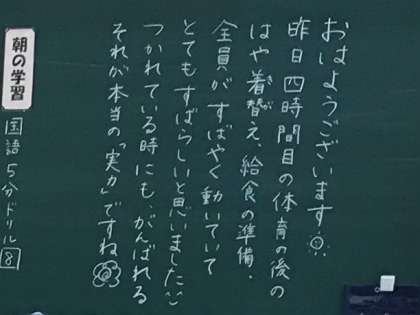 おはようございます
昨日四時間目の体育の後の
はや着替え、給食の準備・
全員がすばやく動いていて
とてもすばらしいと思いました
つかれている時にも、がんばれる
それが本当の「実力」ですね
朝の学習
国語5分ドリル8